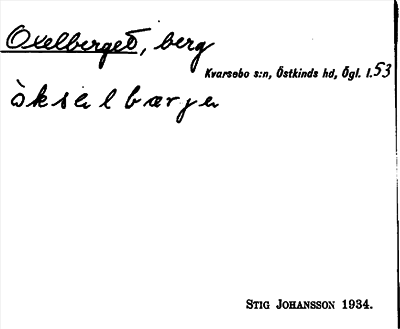 Oxelberget, berg
Kvarsebo s:n, Östkinds hd, Ögl. l. 53
òksəlbærjə
STIG JOHANSSON 1934.